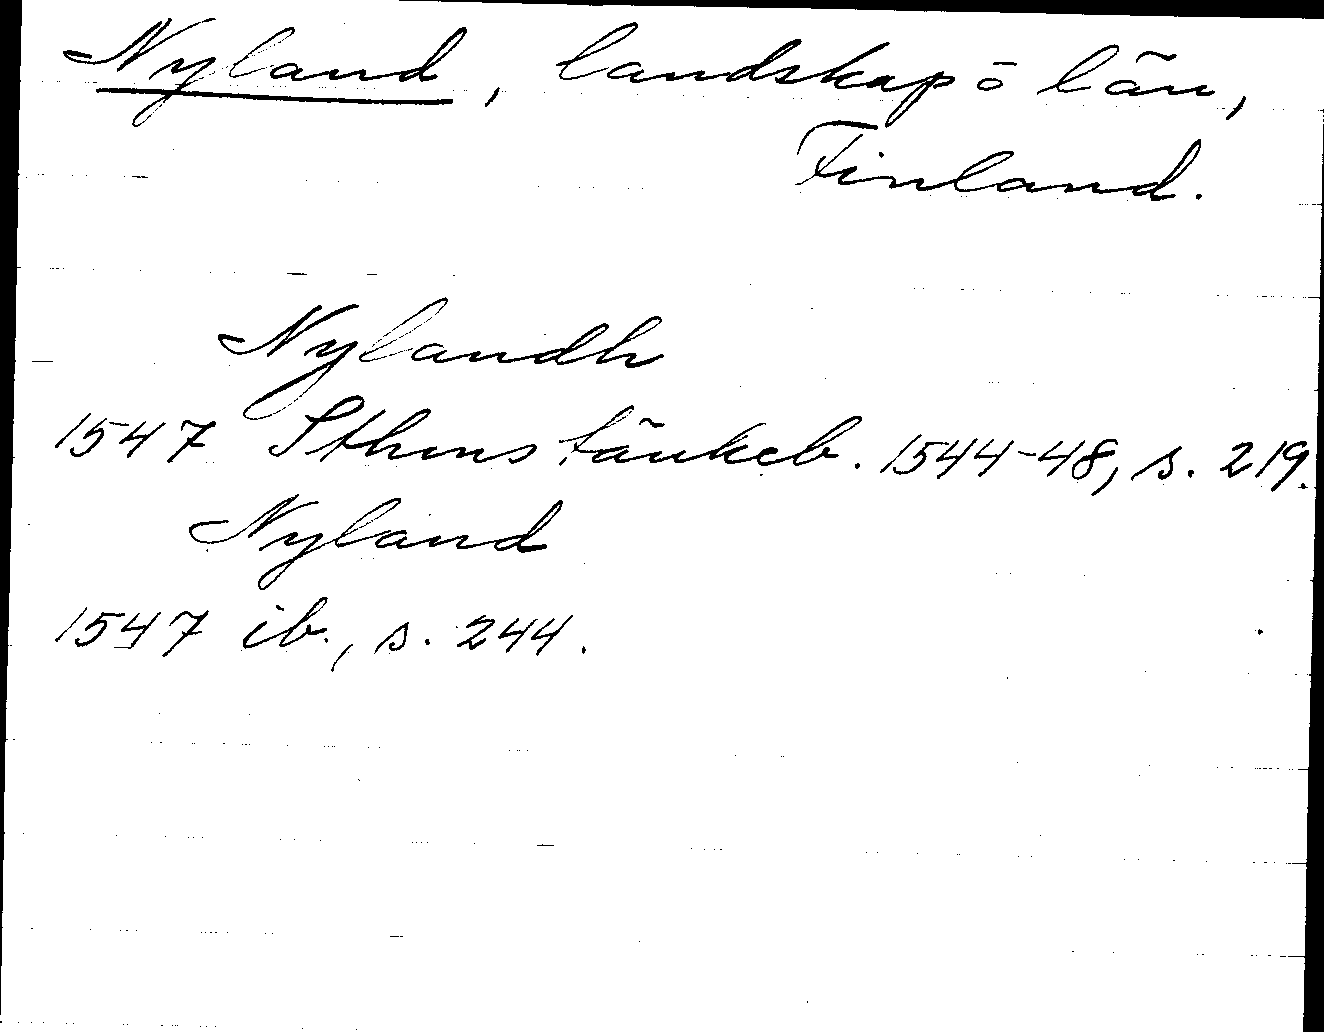 Nyland, landskap o län,
Finland.
Nylandh
1547 Sthms tänkeb. 1544-48, s. 219.
Nyland
1547 ib., s. 244.